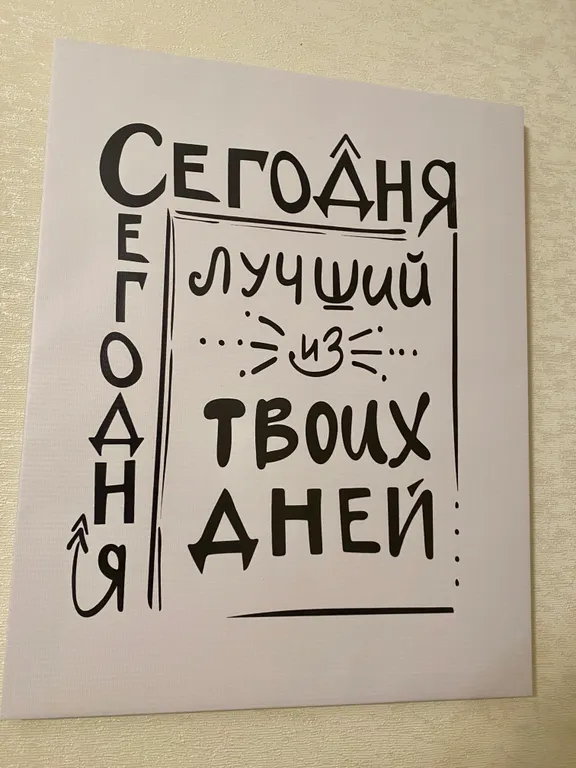 СЕГОДНЯ
СЕГОДНЯ
ЛУЧШИЙ
ИЗ
ТВОИХ
ДНЕЙ